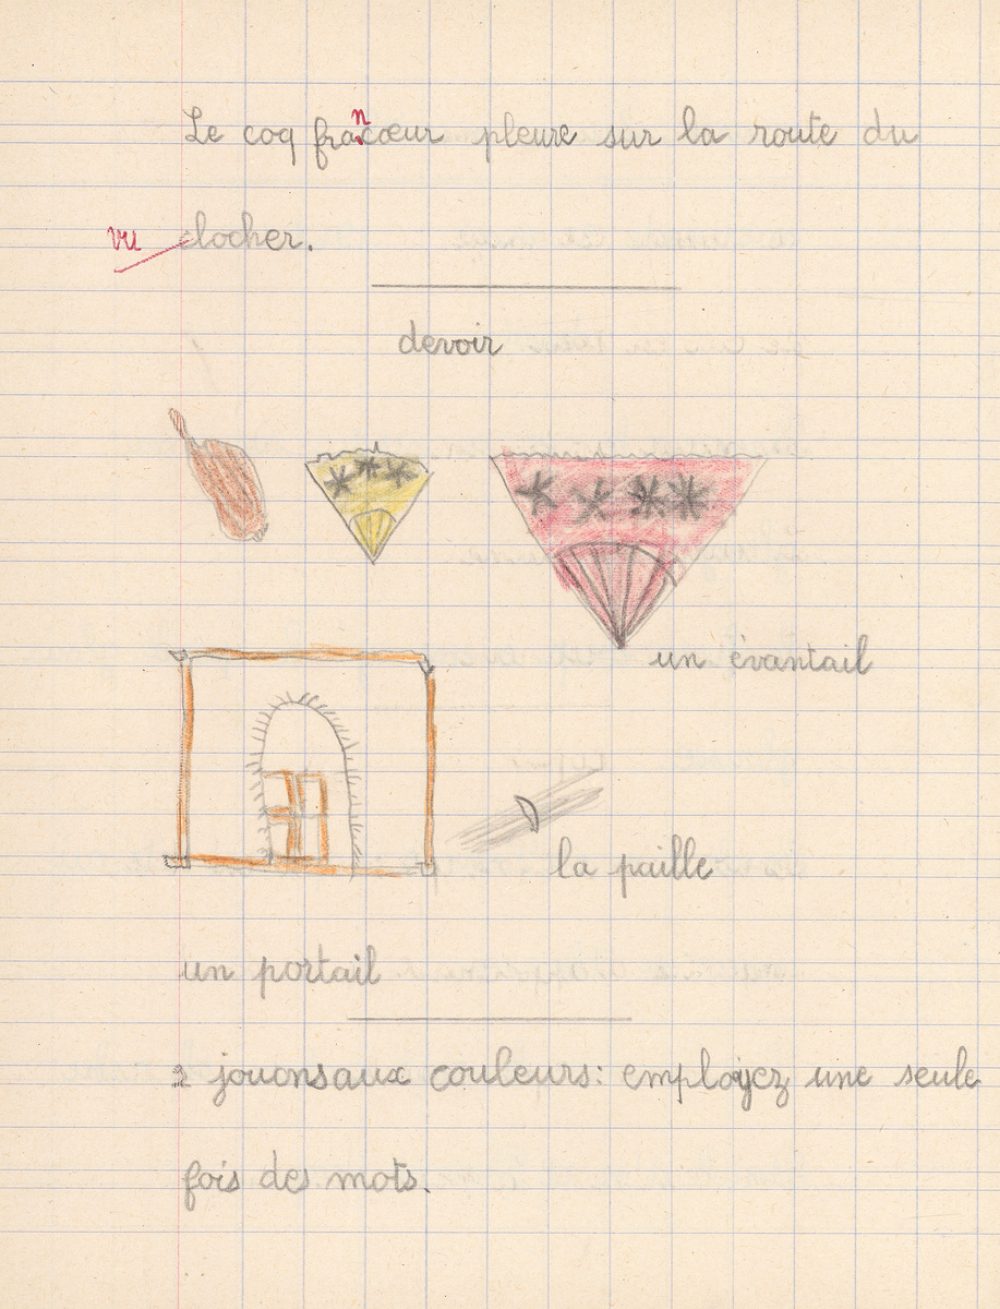 Le coq francœur pleure sur la route du
vu clocher.
devoir
un évantail
la paille
un portail
2 jouons aux couleurs: employez une seule
fois des mots.